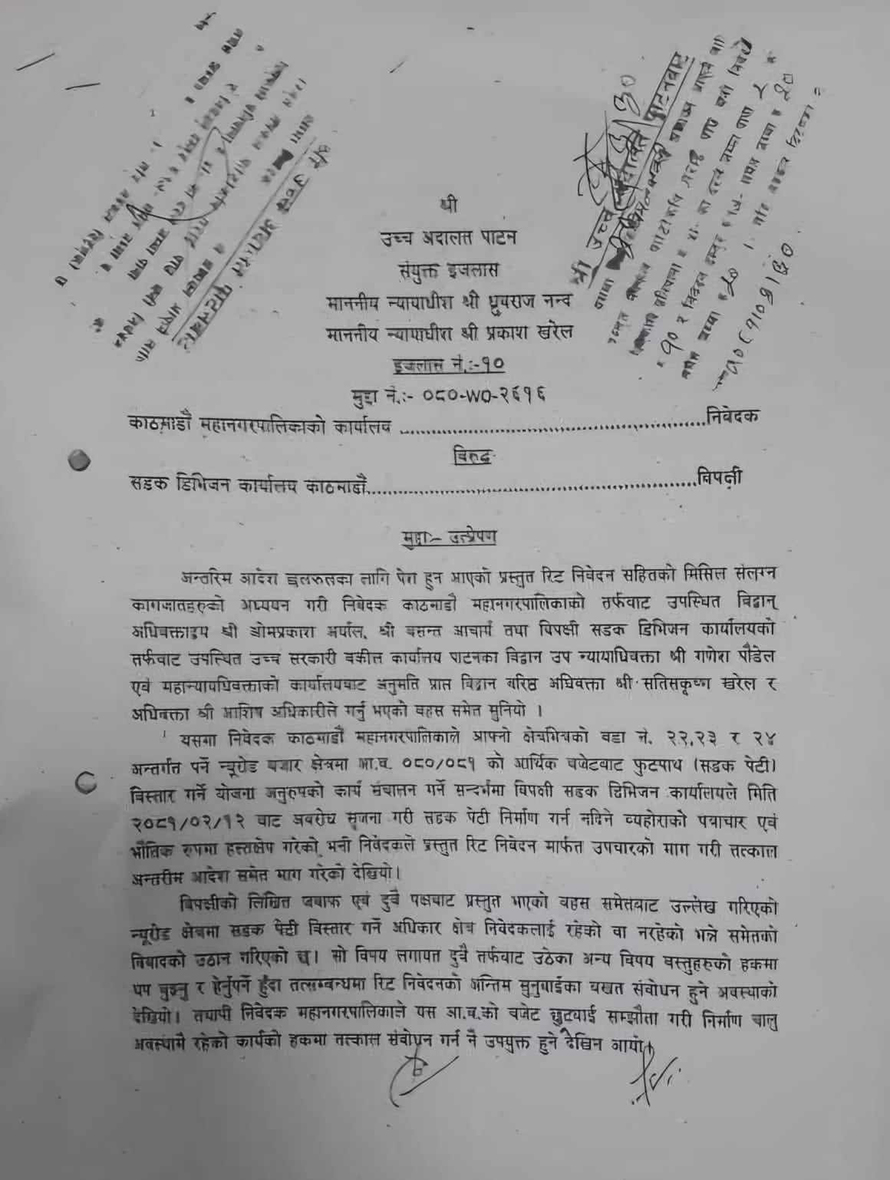 श्री
उच्च अदालत पाटन
संयुक्त इजलास
माननीय न्यायाधीश श्री ध्रुवराज नन्द
माननीय न्यायाधीश श्री प्रकाश खरेल
इजलास नं.:-१०
मुद्दा नं.:- ०८०-WO-२६१६
काठमाडौं महानगरपालिकाको कार्यालय ........................................................निवेदक
विरुद्ध
सडक डिभिजन कार्यालय काठमाडौं............................................................विपक्षी
मुद्दाः- उत्प्रेषण
अन्तरिम आदेश छलफलका लागि पेश हुन आएको प्रस्तुत रिट निवेदन सहितको मिसिल संलग्न
कागजातहरुको अध्ययन गरी निवेदक काठमाडौं महानगरपालिकाको तर्फवाट उपस्थित विद्वान्
अधिवक्ताद्वय श्री ओमप्रकाश अर्याल, श्री वसन्त आचार्य तथा विपक्षी सडक डिभिजन कार्यालयको
तर्फवाट उपस्थित उच्च सरकारी वकील कार्यालय पाटनका विद्वान उप न्यायाधिवक्ता श्री गणेश पौडेल
एवं महान्यायधिवक्ताको कार्यालयवाट अनुमति प्राप्त विद्वान वरिष्ठ अधिवक्ता श्री सतिसकृष्ण खरेल र
अधिवक्ता श्री आशिष अधिकारीले गर्नु भएको वहस समेत सुनियो ।
यसमा निवेदक काठमाडौं महानगरपालिकाले आफ्नो क्षेत्रभित्रको वडा नं. २२,२३ र २४
अन्तर्गत पर्ने न्यूरोड वजार क्षेत्रमा आ.व. ०८०/०८१ को आर्थिक वजेटवाट फुटपाथ (सडक पेटी)
विस्तार गर्ने योजना अनुरुपको कार्य संचालन गर्ने सन्दर्भमा विपक्षी सडक डिभिजन कार्यालयले मिति
२०८१/०२/१२ वाट अवरोध सृजना गरी सडक पेटी निर्माण गर्न नदिने व्यहोराको पत्राचार एवं
भौतिक रुपमा हस्तक्षेप गरेको भनी निवेदकले प्रस्तुत रिट निवेदन मार्फत उपचारको माग गरी तत्काल
अन्तरीम आदेश समेत माग गरेको देखियो।
विपक्षीको लिखित जवाफ एवं दुवै पक्षवाट प्रस्तुत भएको वहस समेतवाट उल्लेख गरिएको
न्यूरोड क्षेत्रमा सडक पेटी विस्तार गर्ने अधिकार क्षेत्र निवेदकलाई रहेको वा नरहेको भन्ने समेतको
विवादको उठान गरिएको छ। सो विषय लगायत दुवै तर्फवाट उठेका अन्य विषय वस्तुहरुको हकमा
थप वुझ्नु र हेर्नुपर्ने हुँदा तत्सम्बन्धमा रिट निवेदनको अन्तिम सुनुवाईका वखत संवोधन हुने अवस्थाको
देखियो। तथापी निवेदक महानगरपालिकाले यस आ.व.को वजेट छुट्याई सम्झौता गरी निर्माण चालु
अवस्थामै रहेको कार्यको हकमा तत्काल संवोधन गर्न नै उपयुक्त हुने देखिन आयो।